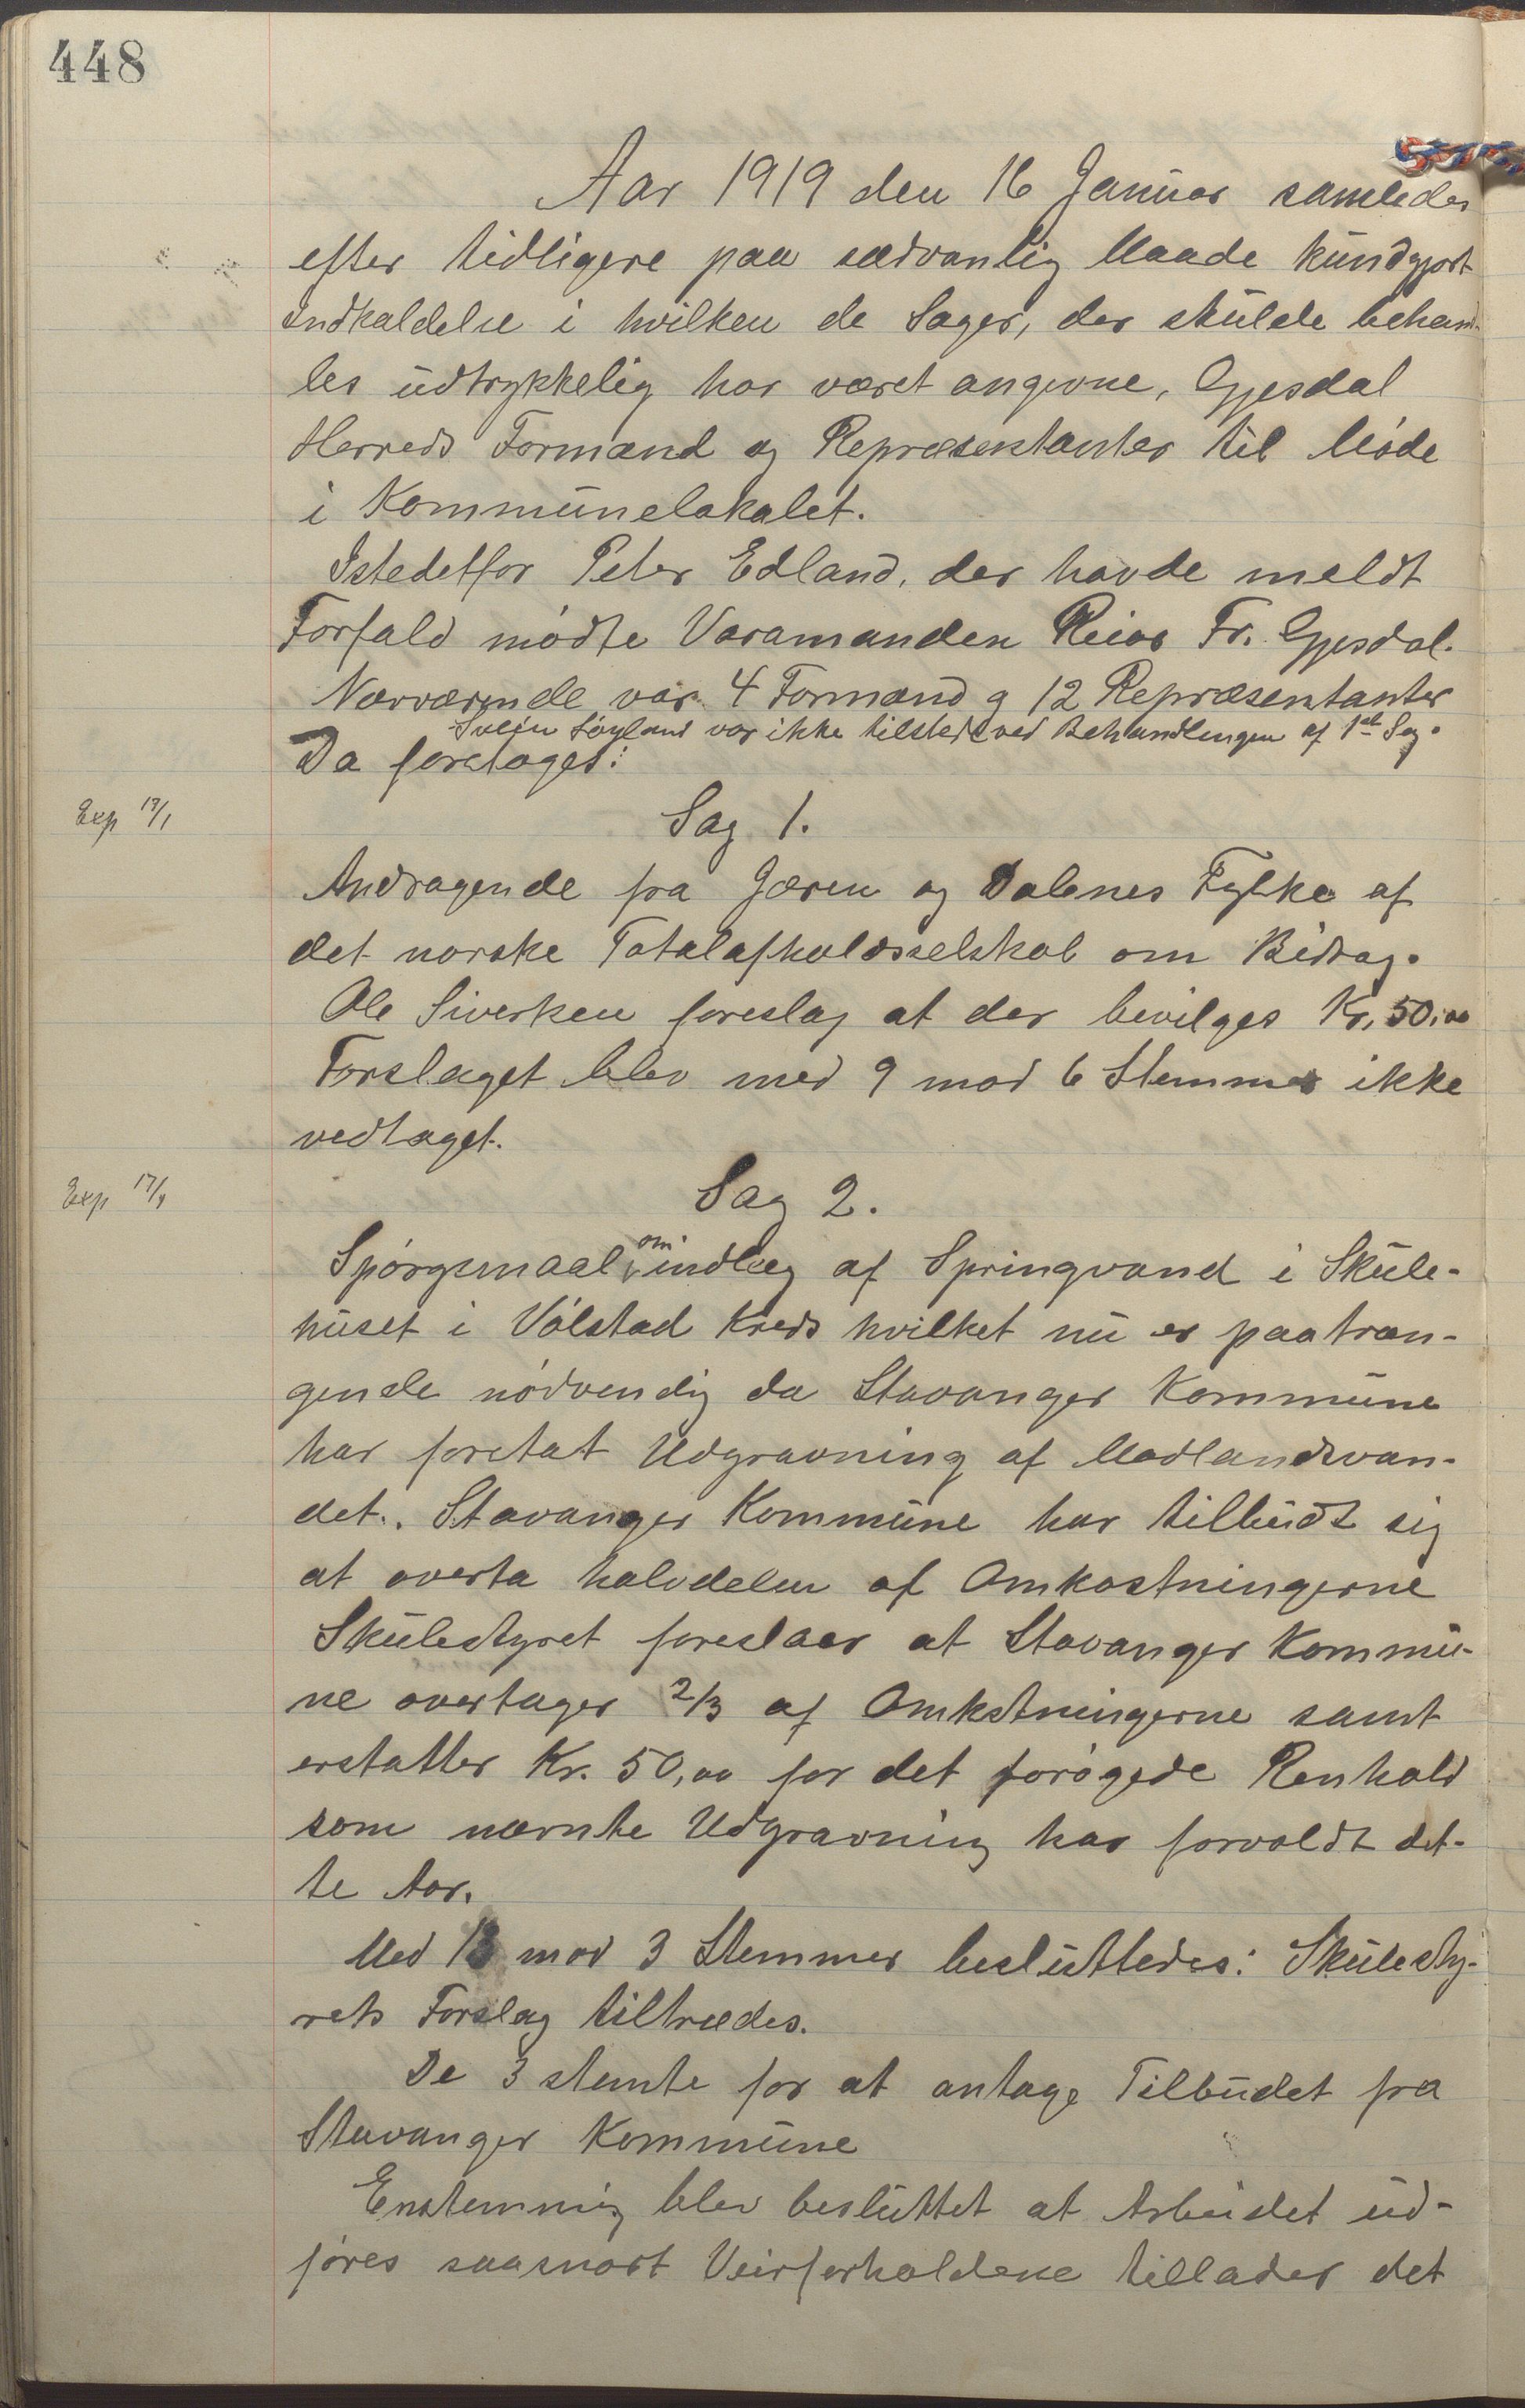 448
Aar 1919 den 16 Januar samledes
efter tidligere paa sædvanlig Maade kundgjort
Indkaldelse i hvilken de Sager, der skulde behand-
les udtrykkelig har været angivne, Gjesdal
Herreds Formænd og Repræsentanter til Møde
i Kommunelokalet.
Istedetfor Peter Edland, der havde meldt
Forfald mødte Varamanden Reiar Fr. Gjesdal.
Nærværende var 4 Formænd og 12 Repræsentanter
Svein Søyland var ikke tilstede ved Behandlingen af 1ste Sag.
Da foretoges:
Exp 17/1
Sag 1.
Andragende fra Jæren og Dalenes Fylke af
det norske Totalafholdsselskab om Bidrag.
Ole Sivertsen foreslog at der bevilges Kr. 50,00
Forslaget blev med 9 mod 6 Stemmer ikke
vedtaget.
Exp 17/1
Sag 2.
Spørgsmaal om indlæg af Springvand i Skule-
huset i Vølstad Kreds hvilket nu er paatræn-
gende nødvendig da Stavanger Kommune
har foretat Udgravning af Modlandsvan-
det. Stavanger Kommune har tilbudt sig
at overta halvdelen af Omkostningerne
Skulestyret foreslaar at Stavanger Kommu-
ne overtager 2/3 af Omkstningerne samt
erstatter Kr. 50,00 for det forøgede Renhold
som nævnte Udgravning har forvoldt det-
te Aar.
Med 13 mod 3 Stemmer besluttedes: Skulesty-
rets Forslag tiltrædes.
De 3 stemte for at antage Tilbudet fra
Stavanger Kommune
Enstemmig blev besluttet at Arbeidet ud-
føres saasnart Veirforholdene tillader det